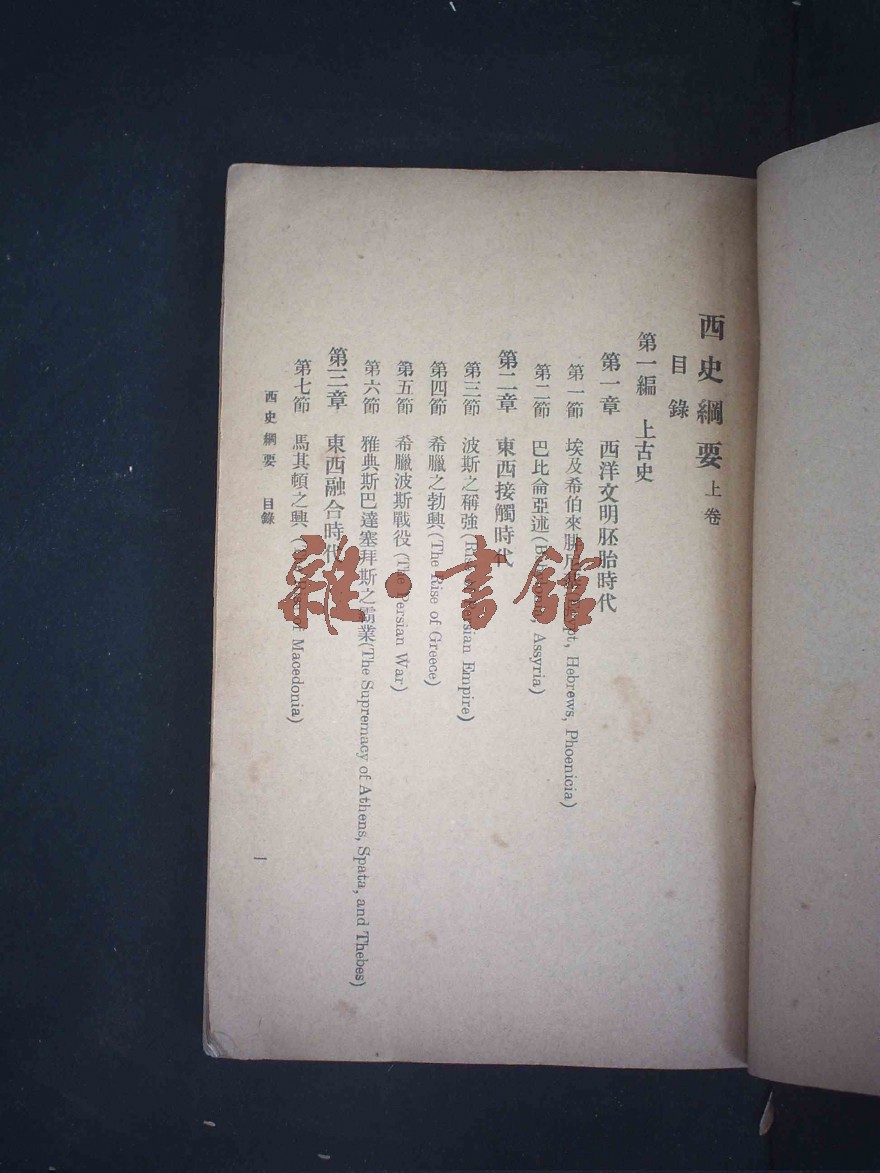 西史綱要 上卷
目錄
第一編 上古史
第一章 西洋文明胚胎時代
第一節 埃及希伯來腓尼基 Hebrews, Phoenicia)
第二節 巴比侖亞述 Assyria)
第二章 東西接觸時代
第三節 波斯之稱強 Empire)
第四節 希臘之勃興 (The Rise of Greece)
第五節 希臘波斯戰役 (The Persian War)
第六節 雅典斯巴達塞拜斯之霸業 (The Supremacy of Athens, Spata, and Thebes)
第三章 東西融合時代
第七節 馬其頓之興 of Macedonia)
西史綱要 目錄
一
雜·書館